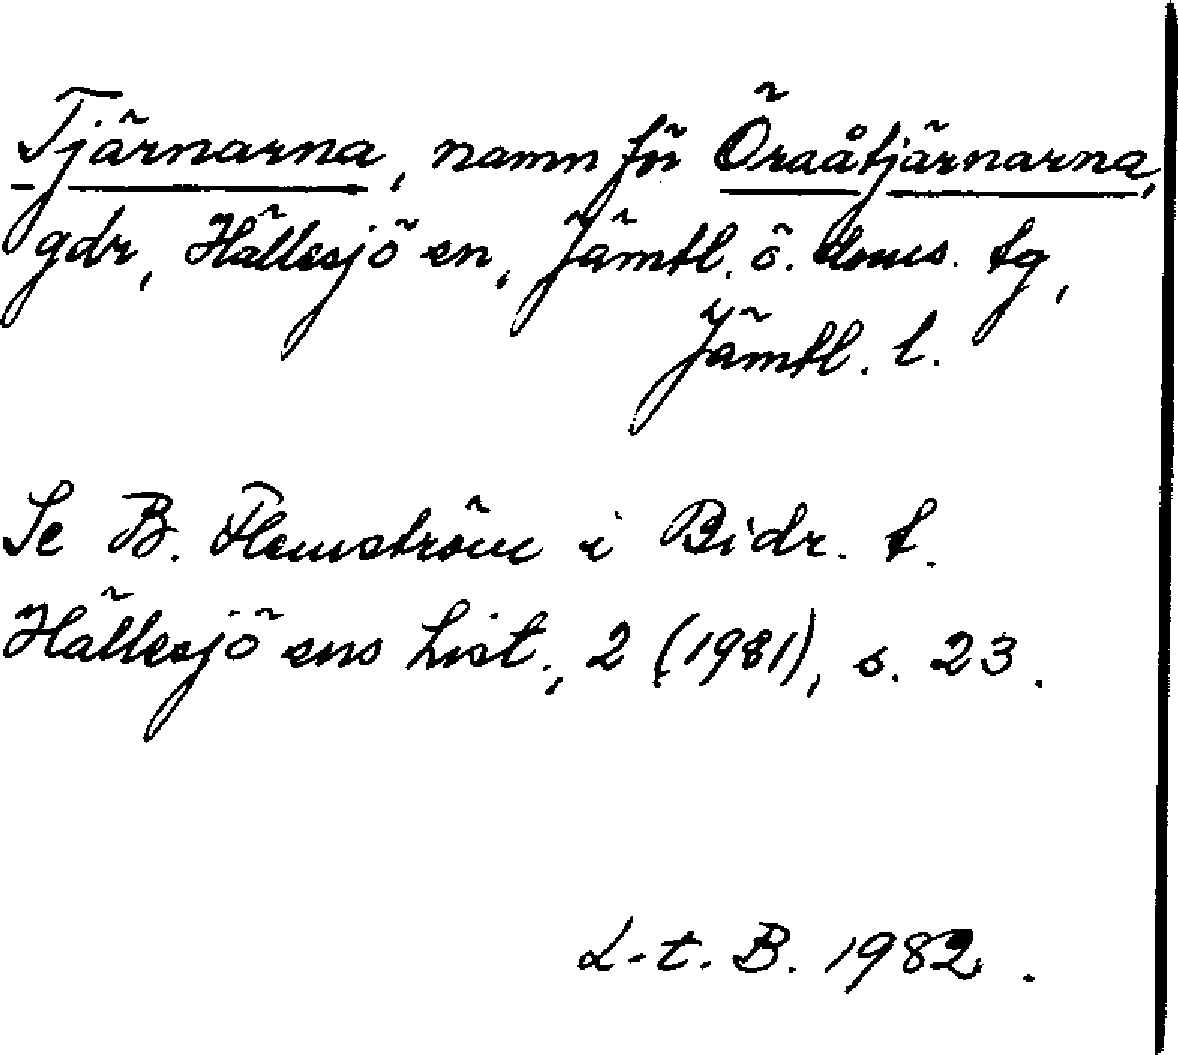 Tjärnarna, namn för Öraåtjärnarna,
gdr, Hällesjö sn, Jämtl. ö. doms. tg,
Jämtl. l.
Se B. Flemström i Bidr. t.
Hällesjö sns hist., 2 (1981), s. 23.
L-t. B. 1982.